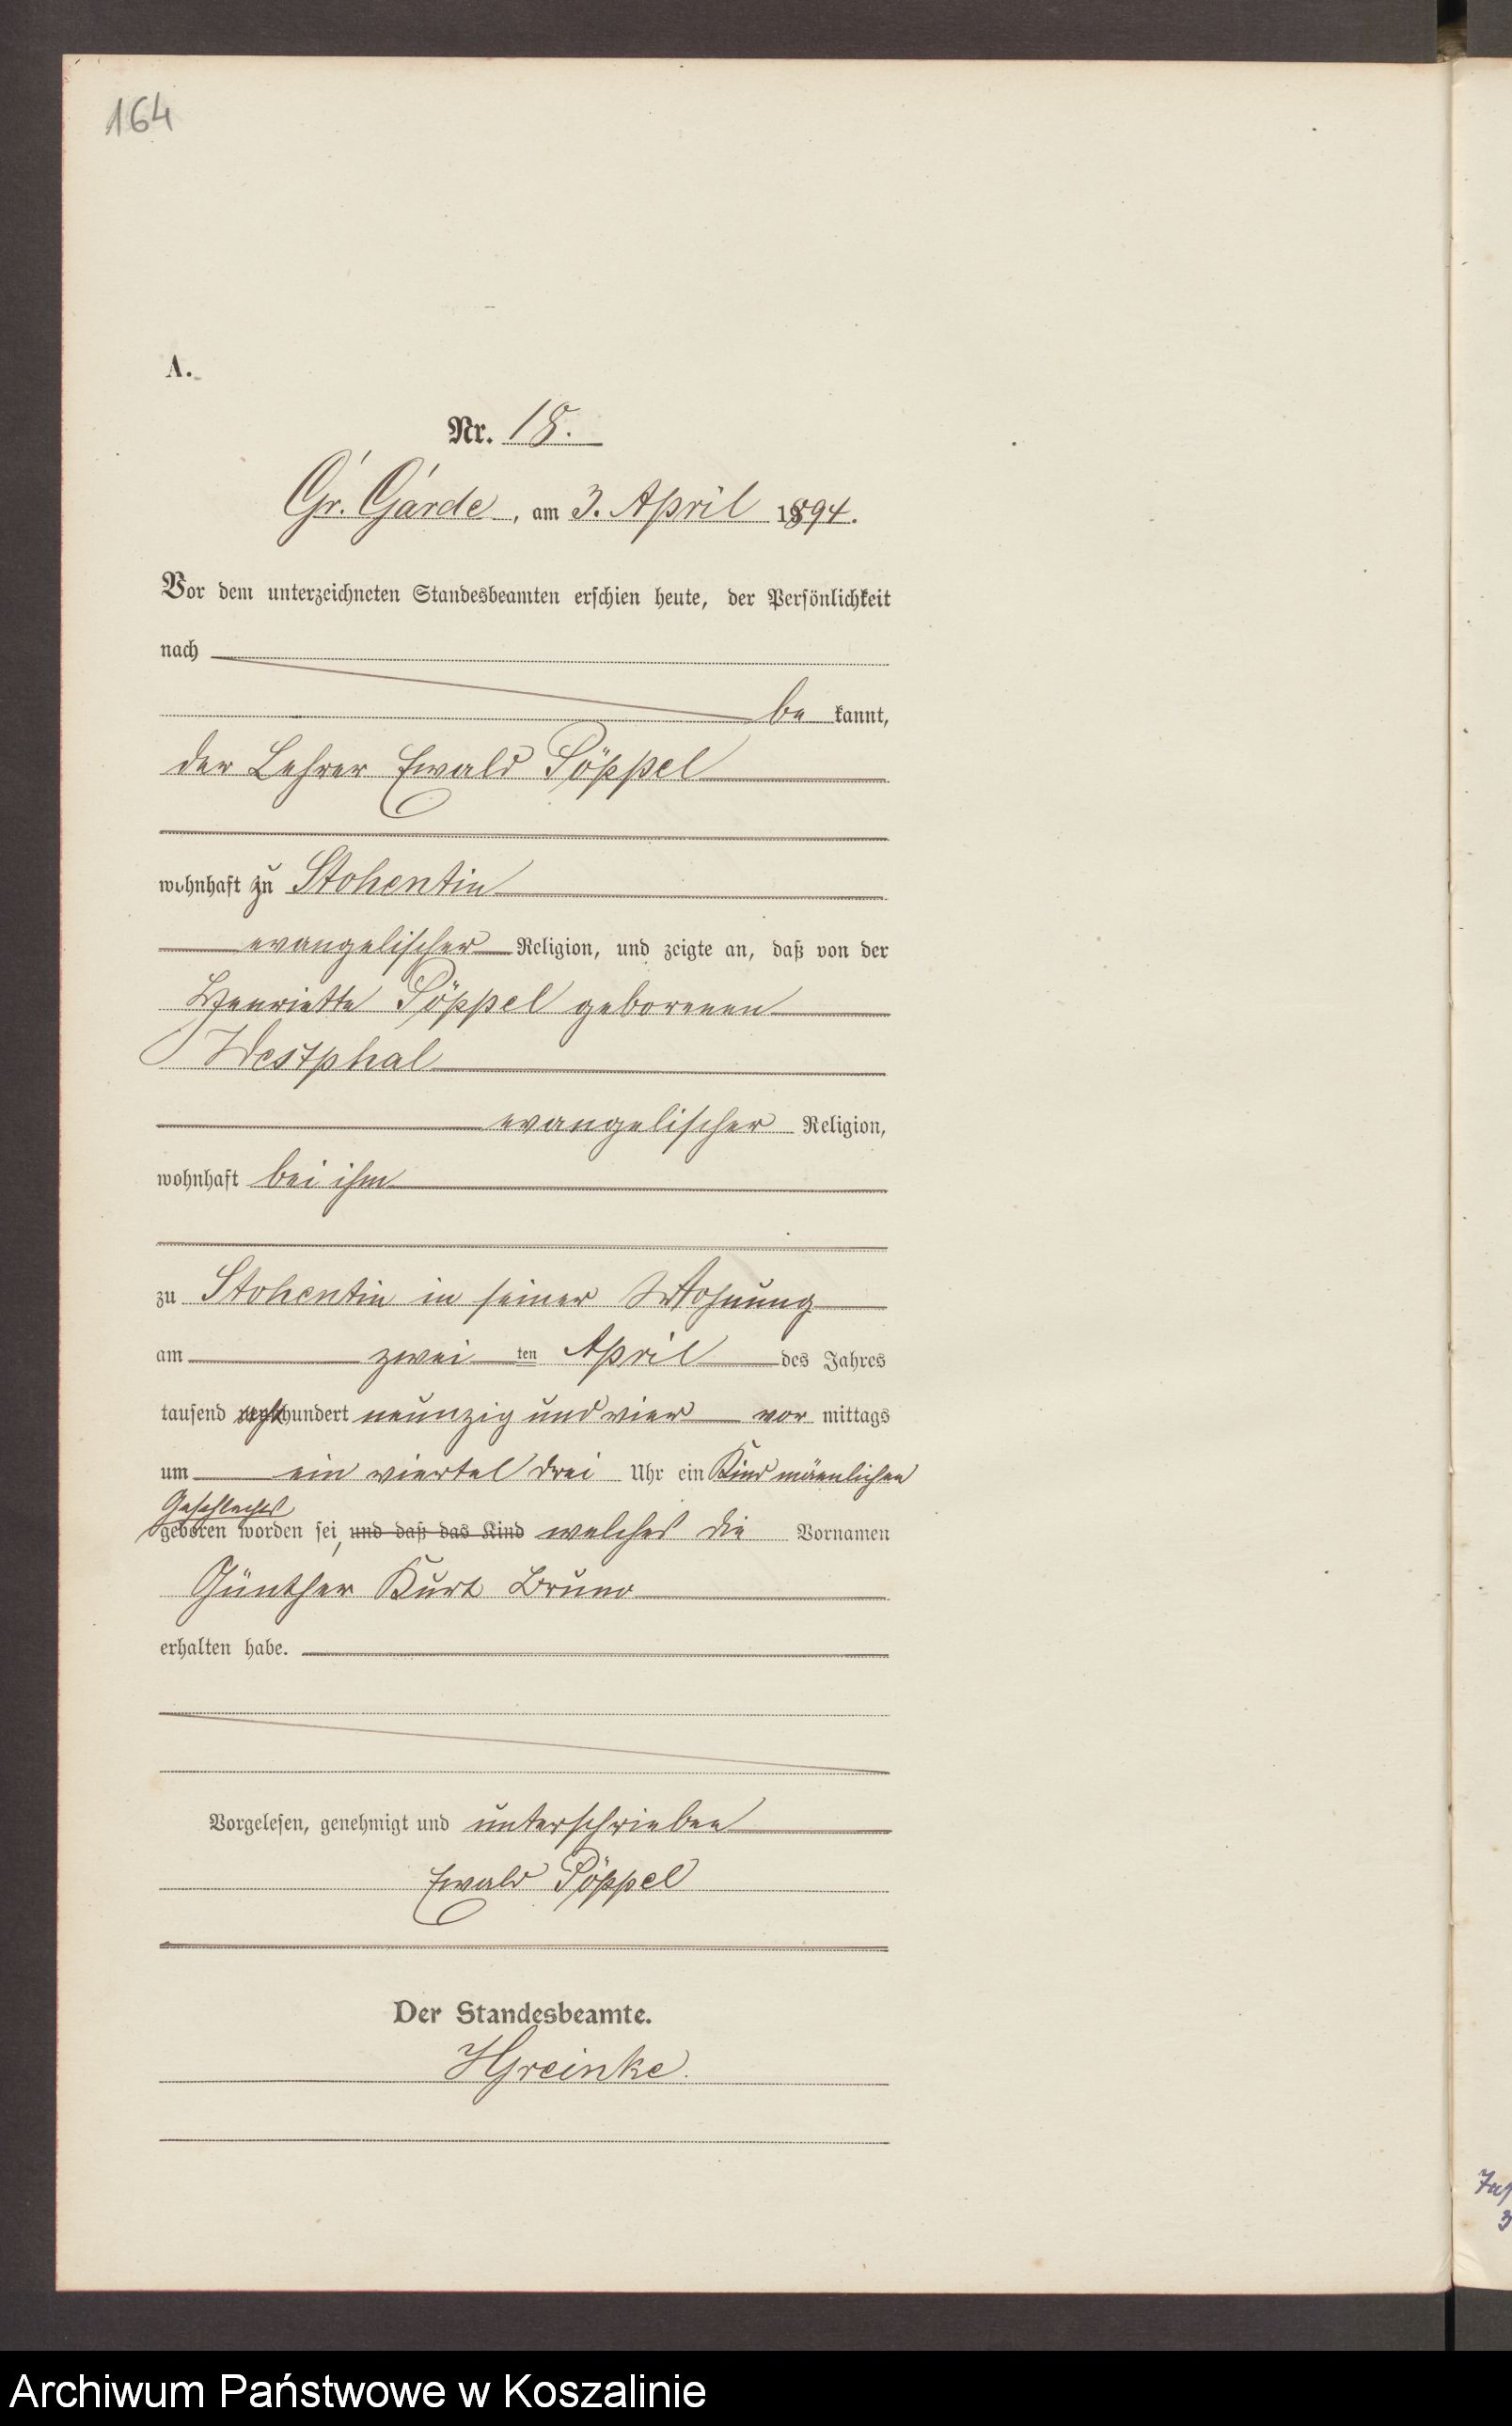 164
A.
Nr. 18.
Gr. Garde, am 3. April 1894.
Vor dem unterzeichneten Standesbeamten erschien heute, der Persönlichkeit
nach
be kannt,
der Lehrer Ewald Pöppel
wohnhaft zu Stohentin
evangelischer Religion, und zeigte an, daß von der
Henriette Pöppel geborenen
Westphal
evangelischer Religion,
wohnhaft bei ihm
zu Stohentin in seiner Wohnung
am zwei ten April des Jahres
tausend achthundert neunzig und vier vor mittags
um ein viertel drei Uhr ein Kind männlichen
Geschlechts
geboren worden sei, und daß das Kind welches die Vornamen
Günther Kurt Bruno
erhalten habe.
Vorgelesen, genehmigt und unterschrieben
Ewald Pöppel
Der Standesbeamte.
Greinke.
Archiwum Państwowe w Koszalinie